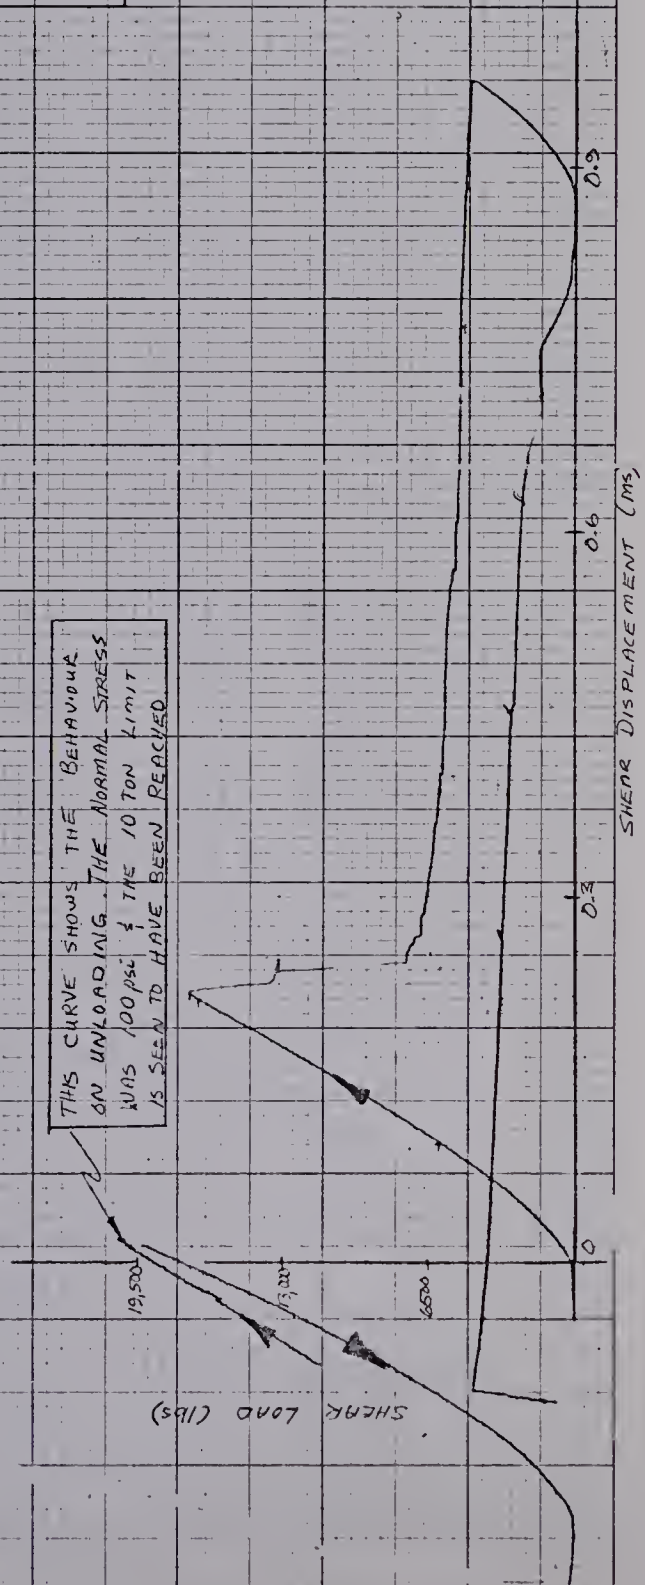 THIS CURVE SHOWS THE BEHAVIOUR
ON UNLOADING. THE NORMAL STRESS
WAS 100 psi & THE 10 TON LIMIT
IS SEEN TO HAVE BEEN REACHED
SHEAR LOAD (lbs)
19,500
13,000
6500
0
0.3
0.6
0.9
SHEAR DISPLACEMENT (ms)